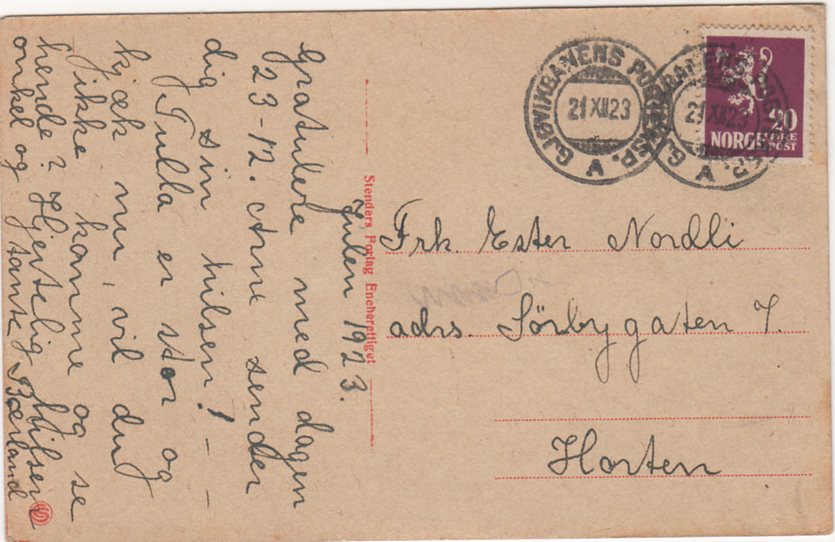 Julen 1923.
Gratulere med dagen
23-12. Arne sender
dig sin hilsen! - -
Tulla er stor og
kjæk nu, vil du
ikke komme og se
hende? Hjertelig hilsen
onkel og tante Bærland
Stenders Forlag Eneberettiget
GJØVIKBANENS POSTEKSP. A
21 XII 23
GJØVIKBANENS POSTEKSP. A
21 XII 23
20
NORGE ØRE
POST
Frk. Ester Nordli
adrs. Sörbygaten 7.
Horten